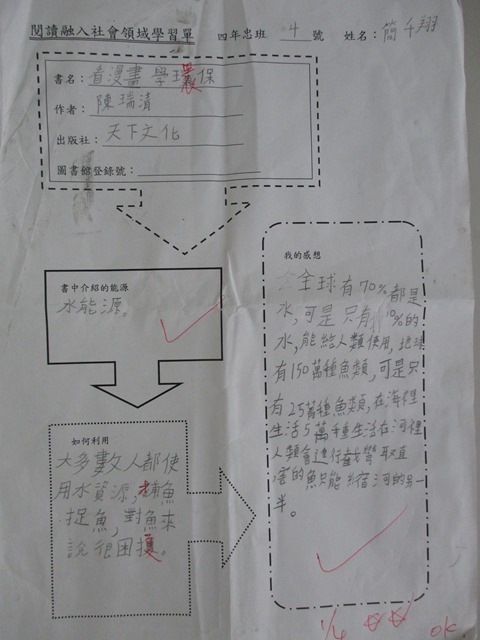 閱讀融入社會領域學習單 四年忠班 4 號 姓名：簡千翔
書名：看漫畫 學環保
作者：陳瑞清
出版社：天下文化
圖書館登錄號：
書中介紹的能源
水能源。
如何利用
大多數人都使
用水資源，魚
捉魚，對魚來
說很困擾。
我的感想
全球有70%都是
水，可是只有10%的
水，能給人類使用，地球
有150萬種魚類，可是只
有25萬種魚類，在海裡
生活5萬種生活在河裡
人類會進行
害的魚只能 河的另一
半。
1/4 ok